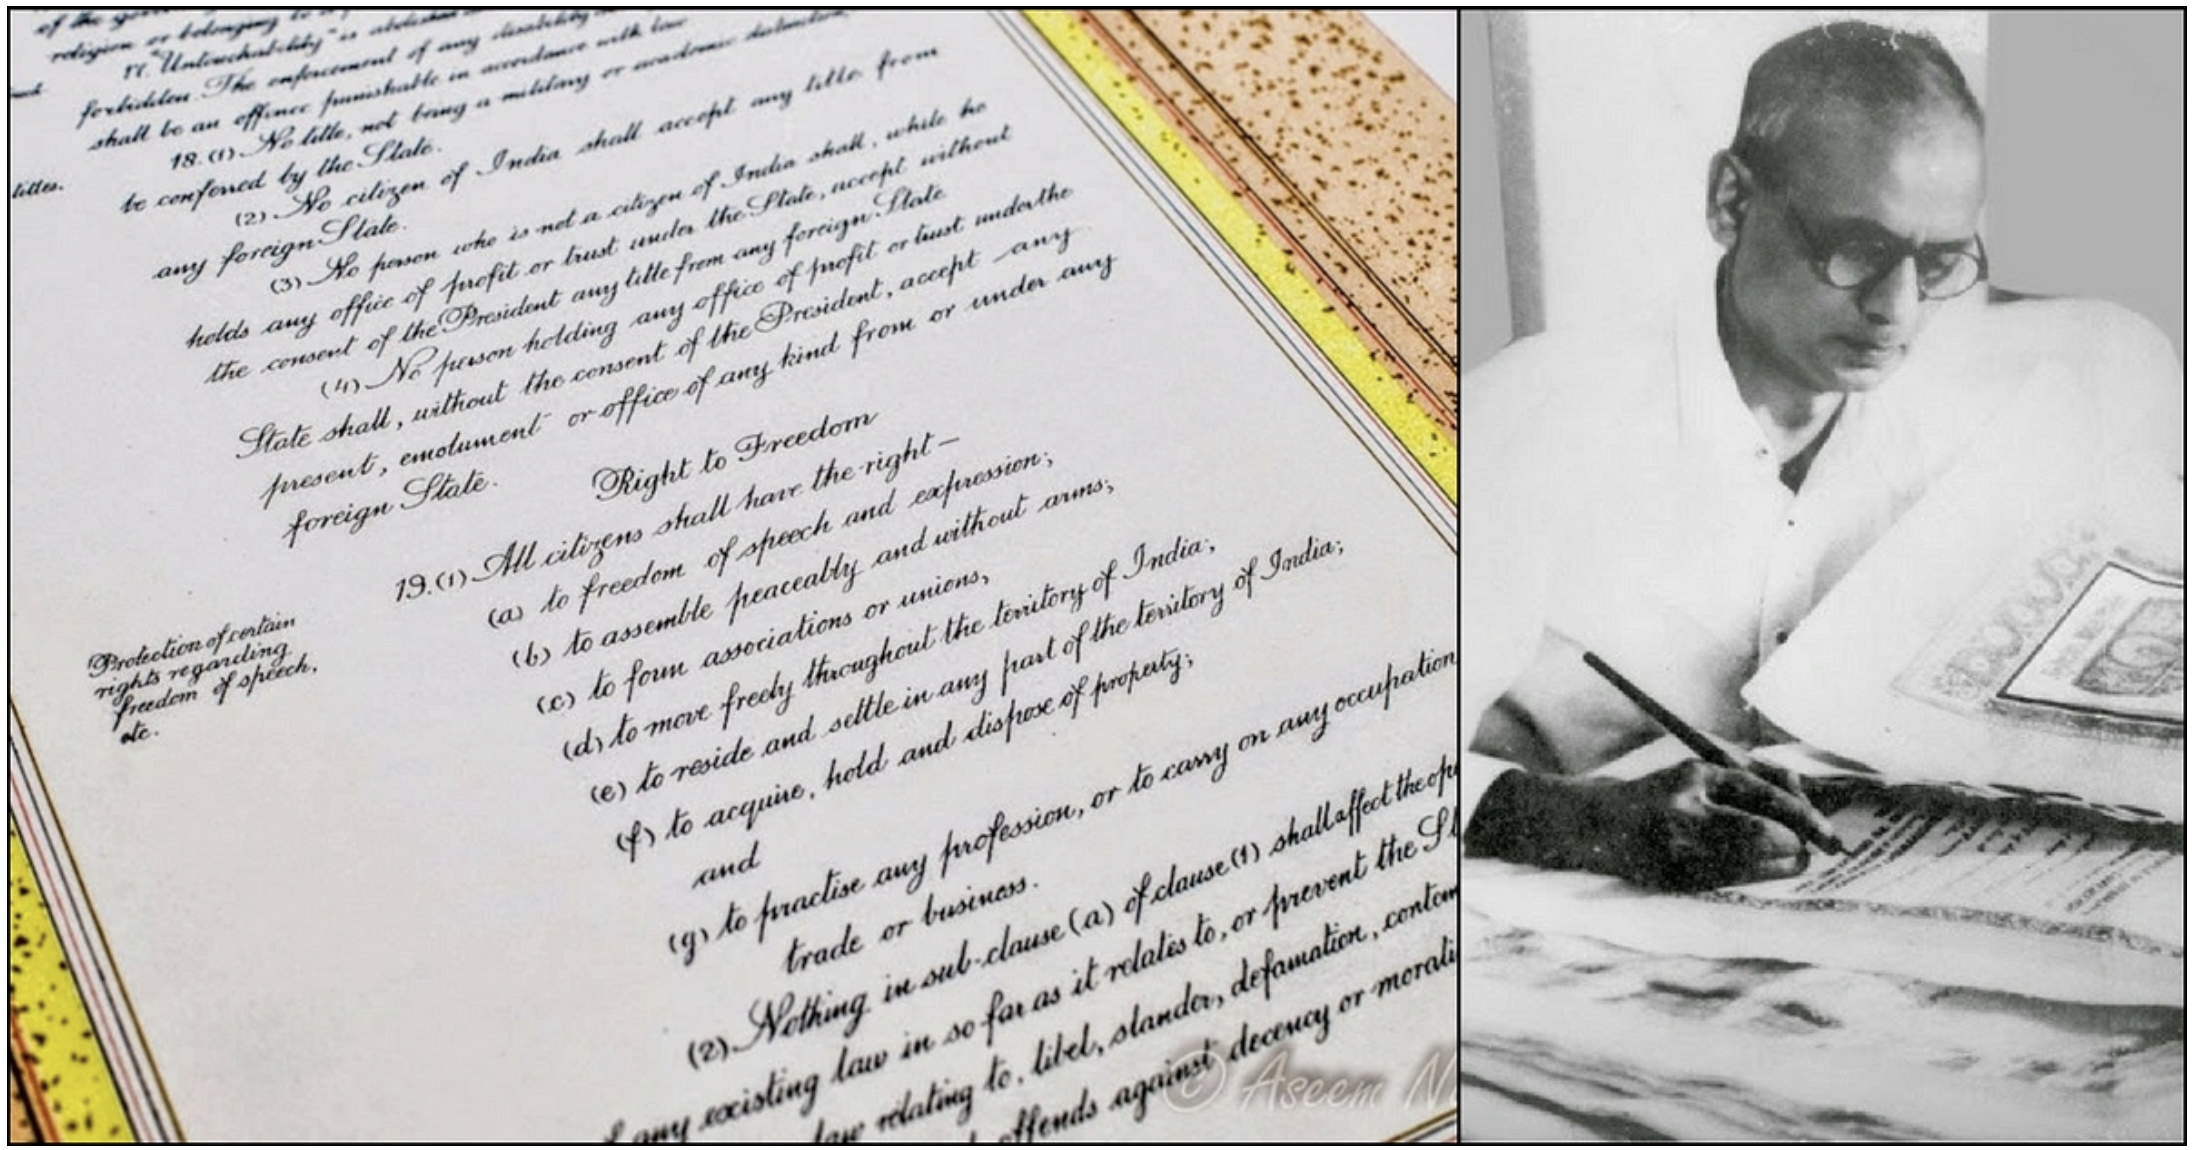 of the
religion or belonging to
17. "Untouchability" is abolished
forbidden. The enforcement of any disability
shall be an offence punishable in accordance with law
18. (1) No title, not being a military or academic distinction,
be conferred by the State.
titles.
(2) No citizen of India shall accept any title from
any foreign State.
(3) No person who is not a citizen of India shall, while he
holds any office of profit or trust under the State, accept without
the consent of the President any title from any foreign State
(4) No person holding any office of profit or trust under the
State shall, without the consent of the President, accept any
present, emolument or office of any kind from or under any
foreign State.
Right to Freedom
19. (1) All citizens shall have the right—
Protection of certain
rights regarding
freedom of speech,
etc.
(a) to freedom of speech and expression;
(b) to assemble peaceably and without arms;
(c) to form associations or unions;
(d) to move freely throughout the territory of India;
(e) to reside and settle in any part of the territory of India;
(f) to acquire, hold and dispose of property;
and
(g) to practise any profession, or to carry on any occupation
trade or business.
(2) Nothing in sub-clause (a) of clause (1) shall affect the
any existing law in so far as it relates to, or prevent the
law relating to, libel, slander, defamation,
offends against decency or
© Aseem